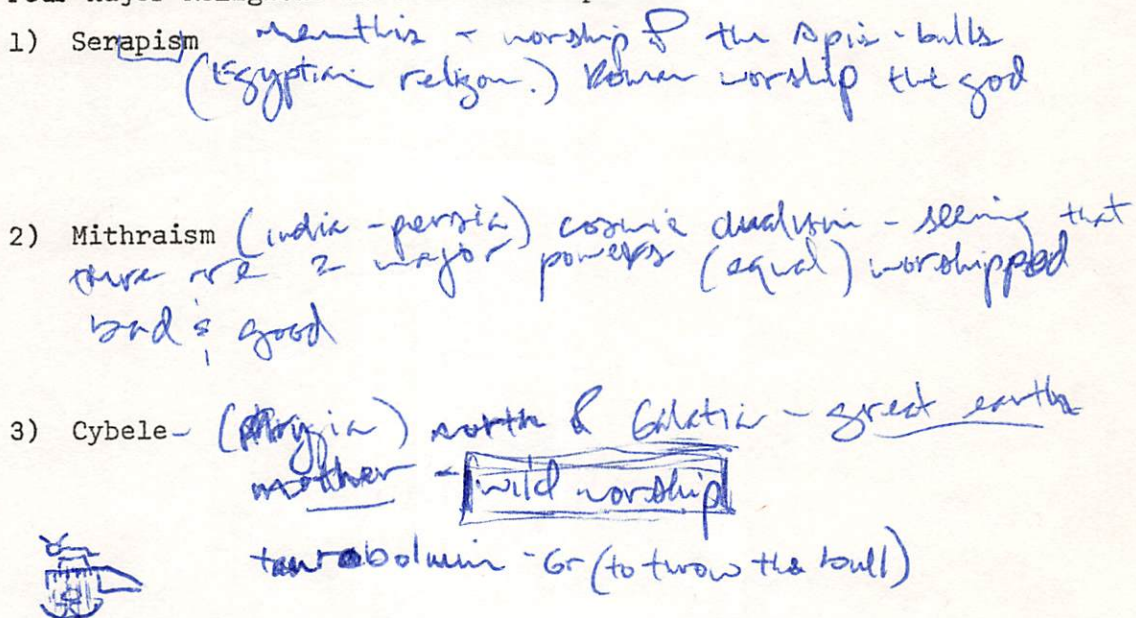 1) Serapism memthis - worship of the Apis-bulls
(Egyptian religon.) Roman worship the god
2) Mithraism (india-persia) cosmic dualism - seeing that
there are 2 major powers (equal) worshipped
bad & good
3) Cybele- (Phrygia) north of Galatia - great earth
mother - wild worship
taurobolium - Gr (to throw the bull)